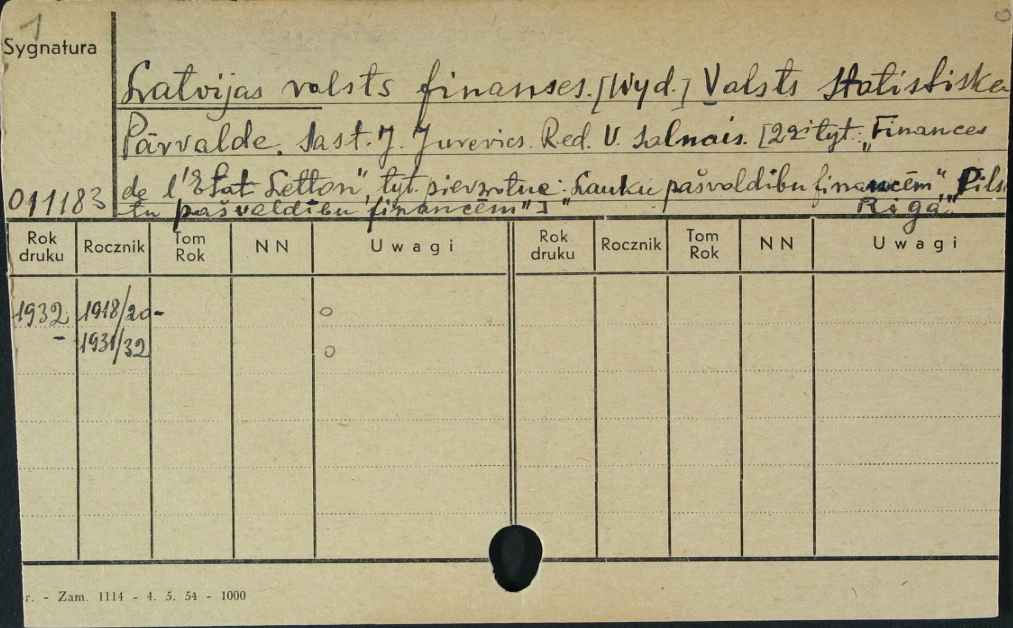 1
Sygnatura
Latvijas valsts finanses. [Wyd.] Valsts Statistiska
Pārvalde. Sast. J. Jurevics. Red. V. Salnais. [2gi tyt.: „Finances
de l'Etat Letton", tyt. : Lauku pašvaldibu financēm", Pilse
011183
tu pašvaldibu financēm"] Rigā
Rok druku Rocznik Tom Rok NN Uwagi Rok druku Rocznik Tom Rok NN Uwagi
1932 1918/20-
- 1931/32
r. - Zam. 1114 - 4. 5. 54 - 1000